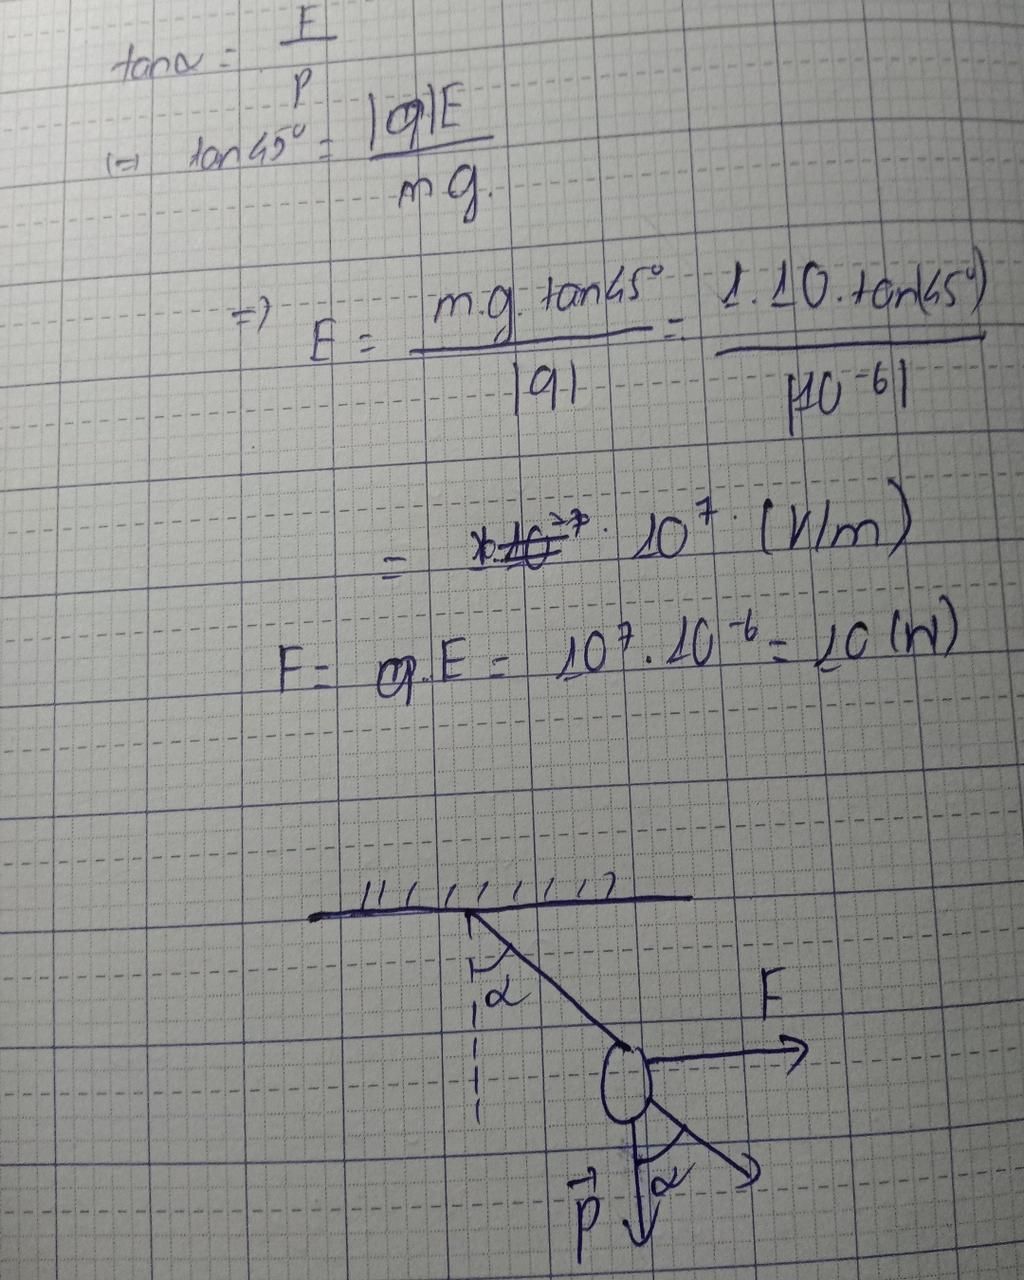 tanα = F/P
(=) tan45° = |q|E / mg.
=> E = m.g.tan45° / |q| = 1.10.tan(45°) / |10⁻⁶|
= 10⁷. (V/m)
F = q.E = 10⁷.10⁻⁶ = 10 (N)
α
F
α
P⃗